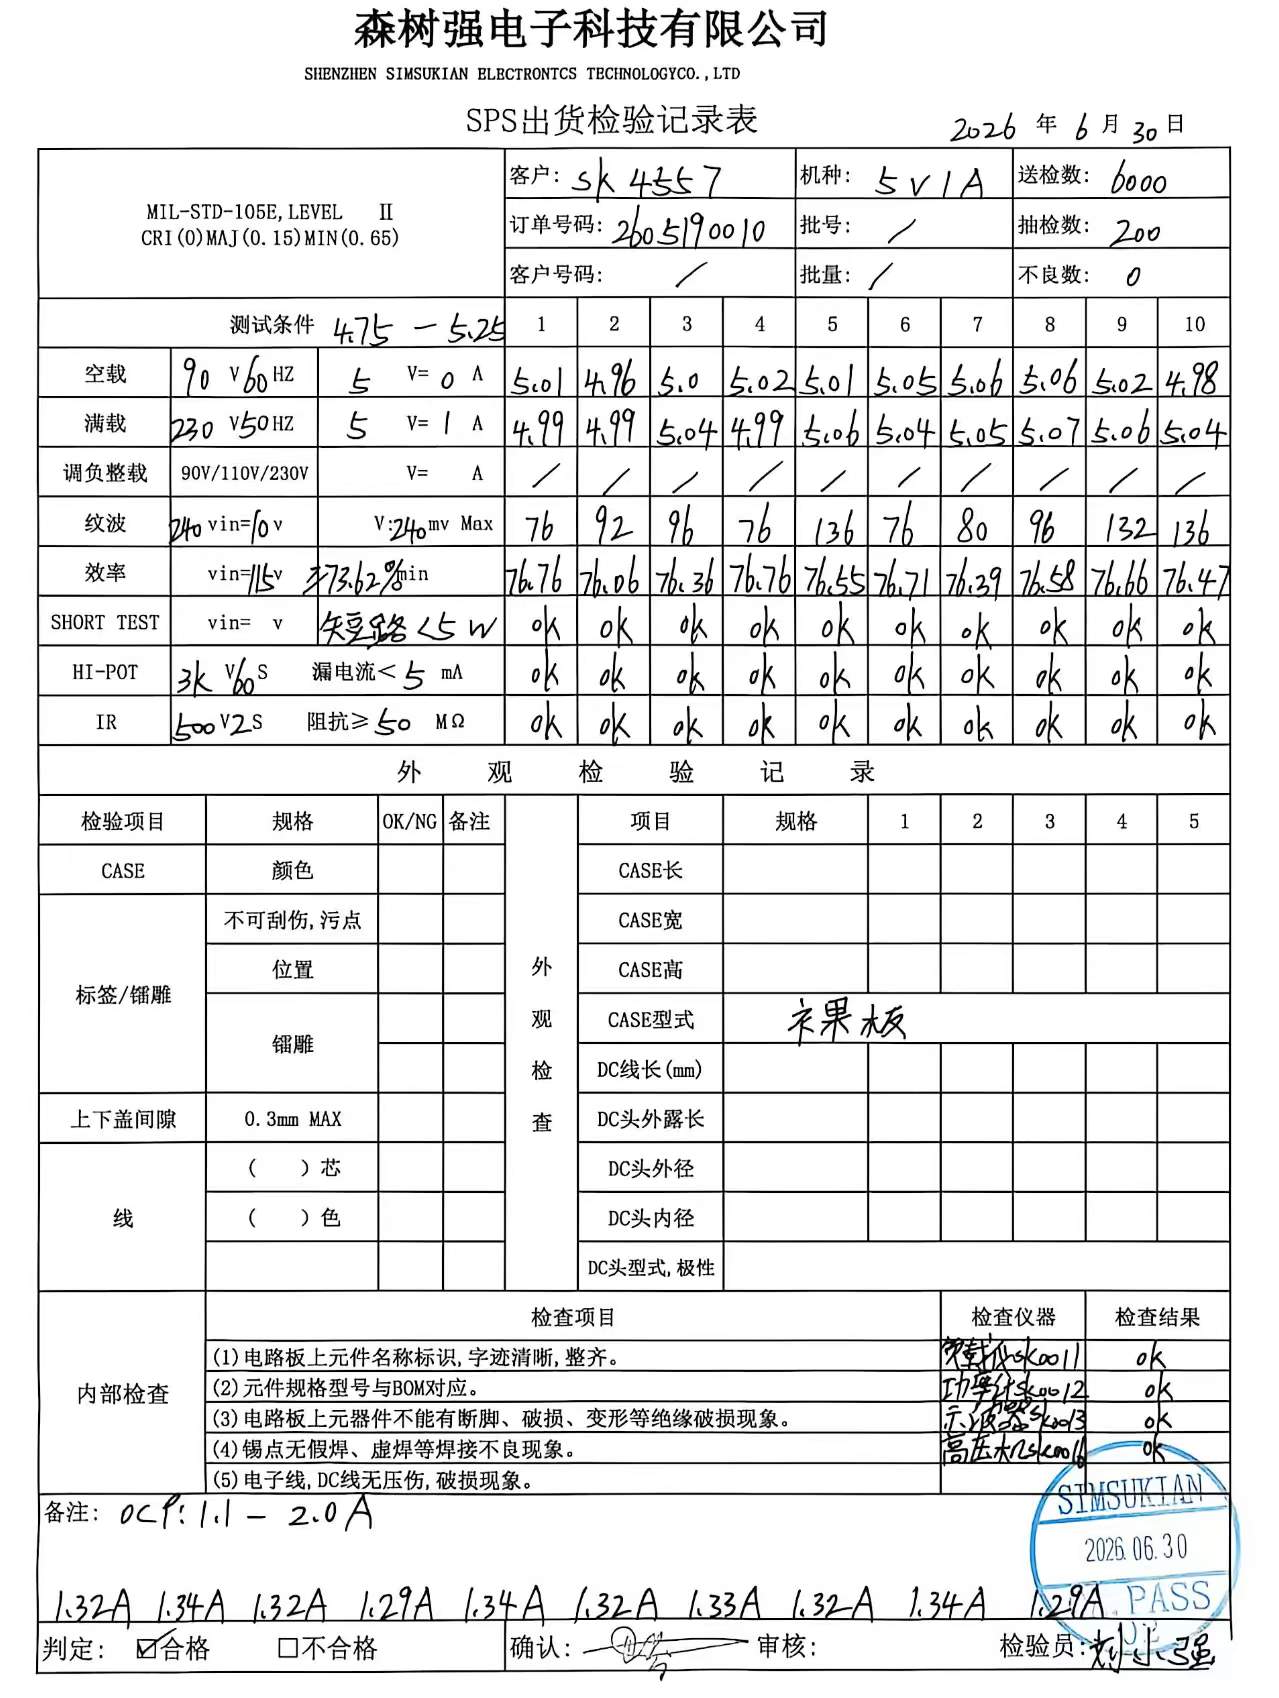 森树强电子科技有限公司
SHENZHEN SIMSUKIAN ELECTRONTCS TECHNOLOGYCO.,LTD
SPS出货检验记录表
2026 年 6 月 30 日
MIL-STD-105E,LEVEL Ⅱ
CRI(0)MAJ(0.15)MIN(0.65)
客户: SK4557 机种: 5V1A 送检数: 6000
订单号码: 2605190010 批号: / 抽检数: 200
客户号码: / 批量: / 不良数: 0
测试条件 4.75 - 5.25 1 2 3 4 5 6 7 8 9 10
空载 90 V 60 HZ 5 V= 0 A 5.01 4.96 5.0 5.02 5.01 5.05 5.06 5.06 5.02 4.98
满载 230 V 50 HZ 5 V= 1 A 4.99 4.99 5.04 4.99 5.06 5.04 5.05 5.07 5.06 5.04
调负整载 90V/110V/230V V= A / / / / / / / / / /
纹波 240 vin= v V:240mv Max 76 92 96 76 136 76 80 96 132 136
效率 vin=115v ≥73.62%min 76.76 76.06 76.36 76.76 76.55 76.71 76.39 76.58 76.66 76.47
SHORT TEST vin= v 短路<5W ok ok ok ok ok ok ok ok ok ok
HI-POT 3K V 60 S 漏电流< 5 mA ok ok ok ok ok ok ok ok ok ok
IR 500 V 2 S 阻抗≥ 50 MΩ ok ok ok ok ok ok ok ok ok ok
外观检验记录
检验项目 规格 OK/NG 备注 项目 规格 1 2 3 4 5
CASE 颜色 CASE长
不可刮伤,污点 CASE宽
位置 CASE高
标签/镭雕 外观检查
镭雕 CASE型式 裸板
DC线长(mm)
上下盖间隙 0.3mm MAX DC头外露长
( )芯 DC头外径
线 ( )色 DC头内径
DC头型式,极性
内部检查 检查项目 检查仪器 检查结果
(1)电路板上元件名称标识,字迹清晰,整齐。 负载仪SK0011 ok
(2)元件规格型号与BOM对应。 功率计SK0012 ok
(3)电路板上元器件不能有断脚、破损、变形等绝缘破损现象。 示波器SK0013 ok
(4)锡点无假焊、虚焊等焊接不良现象。 高压机SK0016 ok
(5)电子线,DC线无压伤,破损现象。
SIMSUKIAN
2026.06.30
PASS
备注: OCP: 1.1 - 2.0A
1.32A 1.34A 1.32A 1.29A 1.34A 1.32A 1.33A 1.32A 1.34A 1.29A
判定: ☑合格 □不合格 确认: 审核: 检验员: 刘小强